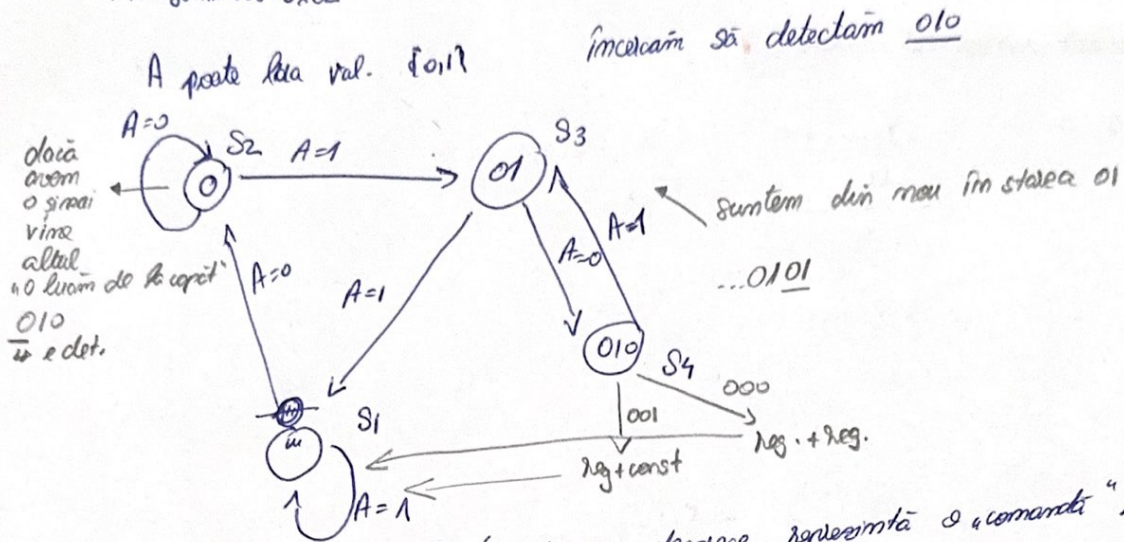 A poate lua val. {0,1}
încercăm să detectăm 010
A=0
S2
A=1
0
01
S3
dacă
avem
0 și mai
vine
altul
"o luăm de la capăt"
010
e det.
suntem din nou în starea 01
...0101
A=0
A=1
A=0
A=1
010
S4
000
001
reg. + reg.
reg + const
S1
in
A=1
reprezintă o „comandă".